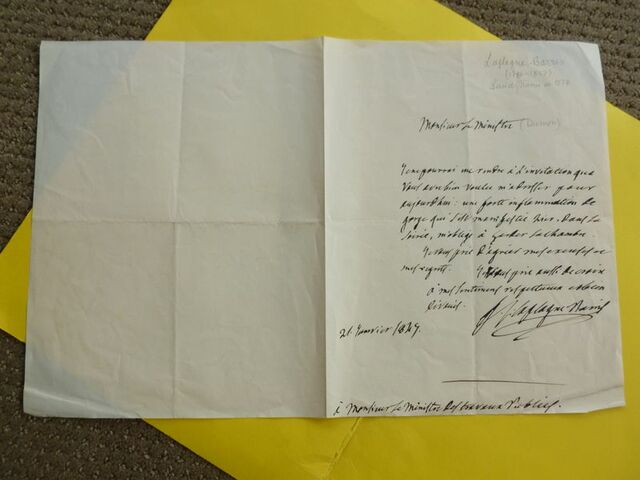 Laplagne-Barris
Monsieur le Ministre (Dumon)
Je ne pourrai me rendre à l'invitation que
vous avez bien voulu m'adresser pour
aujourd'hui: une forte inflammation de
gorge qui s'est manifestée hier, dans la
soirée, m'oblige à garder la chambre.
Je vous prie d'agréer mes excuses et
mes regrets. Je vous prie aussi de croire
à mes sentiments respectueux et bien
dévoués.
Laplagne Barris
21 Janvier 1847.
à Monsieur le Ministre des travaux Publics.